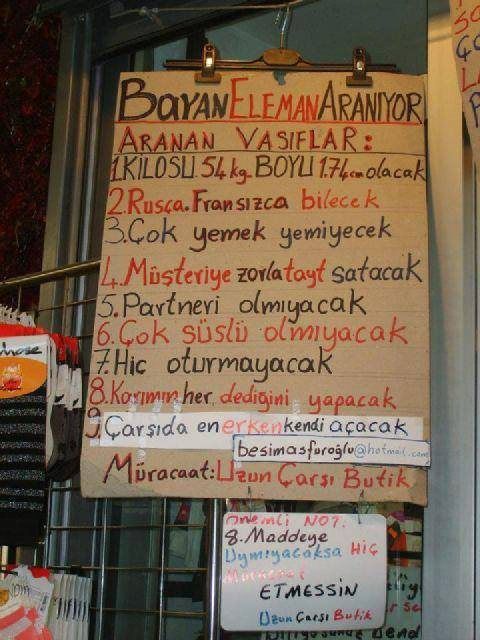 BAYAN ELEMAN ARANIYOR
ARANAN VASIFLAR:
1.KİLOSU 54 kg. BOYU 1.74cm olacak
2.Rusça.Fransızca bilecek
3.Çok yemek yemiyecek
4.Müşteriye zorla tayt satacak
5.Partneri olmıyacak
6.Çok süslü olmıyacak
7.Hiç oturmayacak
8.Karımın her dediğini yapacak
9.Çarşıda en erken kendi açacak
besimasfuroğlu@hotmail.com
Müracaat: Uzun Çarşı Butik
Önemli NOT.
8.Maddeye
Uymıyacaksa Hiç
Müracaat
ETMESSİN
Uzun Çarşı Butik